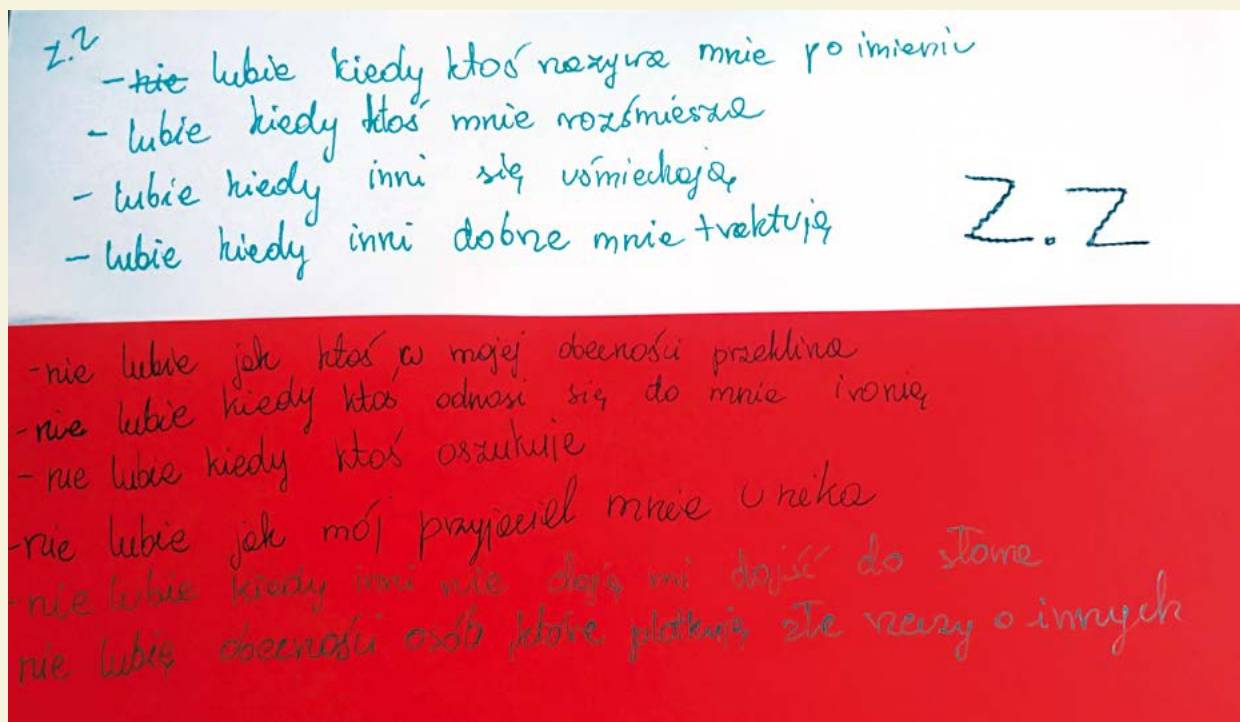 Z.Z
- nie lubie kiedy ktoś nazywa mnie po imieniu
- lubie kiedy ktoś mnie rozśmiesza
- lubie kiedy inni się uśmiechają
- lubie kiedy inni dobrze mnie traktują
Z.Z
- nie lubie jak ktoś w mojej obecności przeklina
- nie lubie kiedy ktoś odnosi się do mnie ironią
- nie lubie kiedy ktoś oszukuje
- nie lubie jak mój przyjaciel mnie unika
- nie lubie kiedy inni nie dają mi dojść do słowa
nie lubię obecności osób, które plotkują złe rzeczy o innych